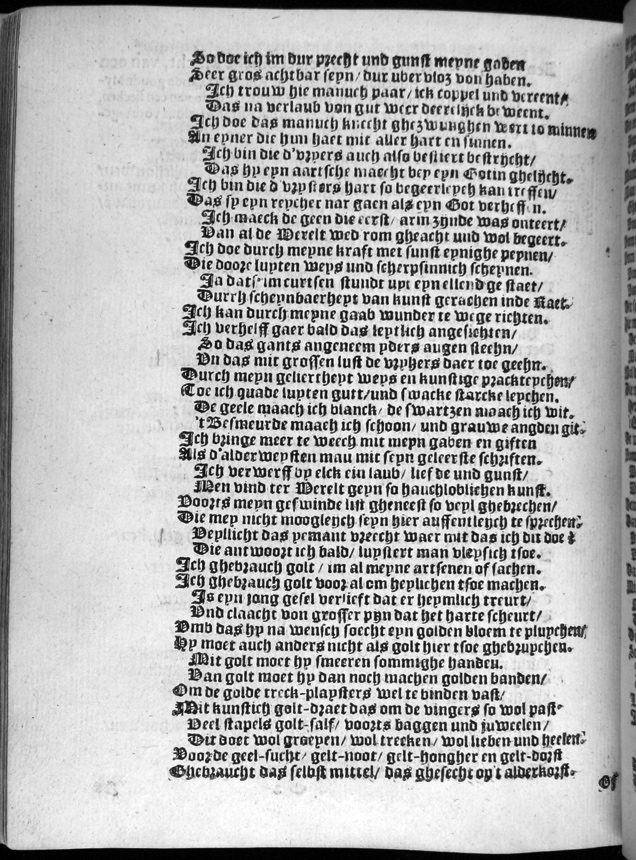 So doe ich im dur precht und gunst meyne gaben
Seer gros achtbar seyn/ dur ubervloz von haben.
Ich trouw hie manuch paar/ ick coppel und vereent/
Das na verlaub von gut weer deerlijck beweent.
Ich doe das manuch knecht ghezwunghen wert to minnen
An eyner die him haet mit aller hart en sinnen.
Ich bin die d'vryers auch also bestiert bestrijcht/
Das hy eyn aartsche maecht bey eyn Gotin ghelijcht.
Ich bin die d'vrysters hart so begeerleych kan treffen/
Das sy eyn reycher nar gaen als eyn Got verheffen.
Ich maeck de geen die eerst/ arm zijnde was onteert/
Van al de Werelt wed rom gheacht und wol begeert.
Ich doe durch meyne kraft met sunst eynighe peynen/
Die doore luyten weys und scherpsinnich scheynen.
Ja dats im curtsen stundt upt eyn ellendge staet/
Durch scheynbaerheyt van kunst gerachen inde Raet.
Ich kan durch meyne gaab wunder te wege richten.
Ich verhelff gaer bald das leytlich angesichten/
So das gants angeneem yders augen steehn/
Un das mit grossen lust de vryhers daer toe geehn.
Durch meyn geliertheyt weys en kunstige prackteychen/
Toe ich quade luyten gutt/und swacke starcke leychen.
De geele maach ich blanck/ de swartzen maach ich wit.
't Besmeurde maach ich schoon/ und grauwe angden git.
Ich bringe meer te weech mit meyn gaben en giften
Als d'alderweysten mau mit seyn geleerste schriften.
Ich verwerff by elck ein laub/ lief de und gunst/
Men vind ter Werelt geyn so hauchloblichen kunst.
Voorts meyn geswinde list gheneest so veyl ghebrechen/
Die mey nicht moogleych seyn hier auffentleych te sprechen.
Veyllicht das yemant vreecht waer mit das ich dit doe?
Die antwoort ich bald/ luystert man vleysich tsoe.
Ich ghebrauch golt/ im al meyne artsenen of sachen.
Ich ghebrauch golt voor al om heylichen tsoe machen.
Is eyn jong gesel verlieft dat er heymlich treurt/
Und claacht von grosser pijn dat het harte scheurt/
Umb das hy na wensch soecht eyn golden bloem te pluychen/
Hy moet auch anders nicht als golt hier tsoe ghebruychen.
Mit golt moet hy smeeren sommighe handen.
Van golt moet hy dan noch machen golden banden/
Om de golde treck-playsters wel te binden vast/
Mit kunstich golt-draet das om de vingers so wol past.
Veel stapels golt-salf/ voorts baggen und juweelen/
Dit doet wol groeyen/ wol trecken/ wol lieben und heelen.
Voor de geel-sucht/ gelt-noot/ gelt-hongher en gelt-dorst
Ghebraucht das selbst mittel/ das ghesecht op't alderkorst.
Of